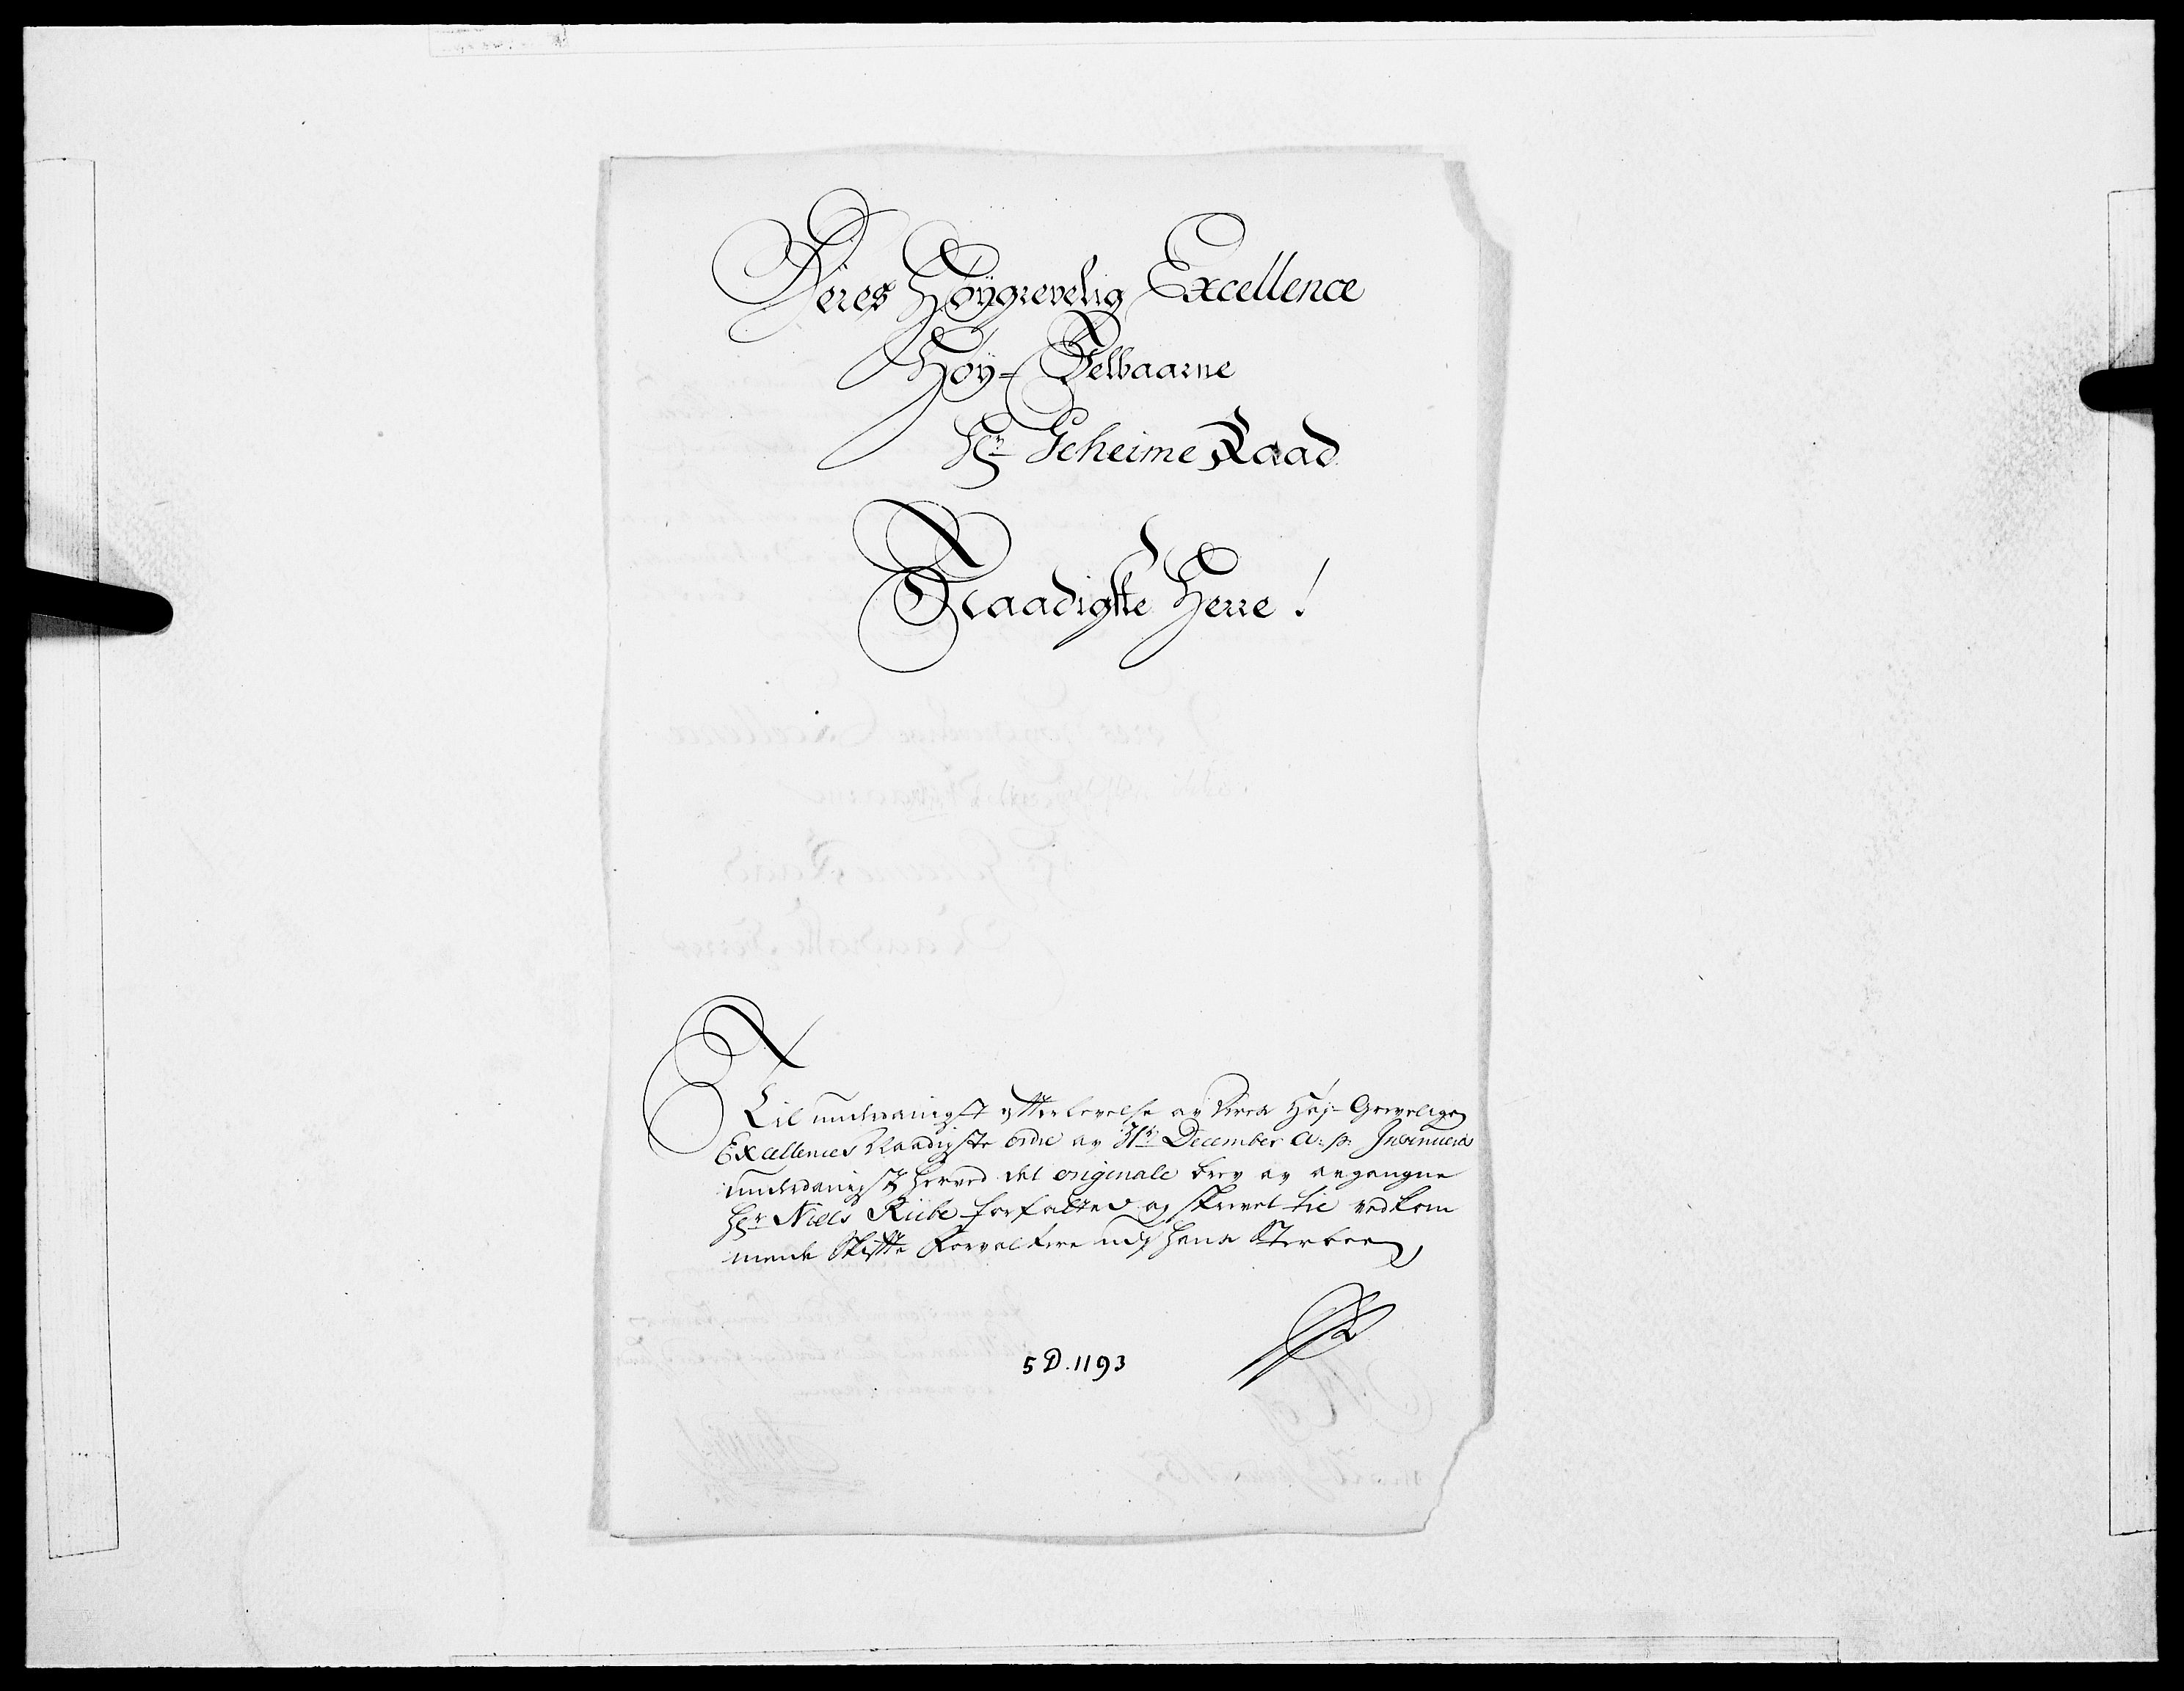 Deres Høygrevelig Excellence
Høy-Edelbaarne
Hr Geheime Raad
Naadigste Herre!
Til underdanigst efterlevelse av Deres Høy-Grevelige
Excellences Naadigste ordre av 31te December a: p: Insinueres
underdanigst herved det originale brev av avgangne
Hr Niels Riibe forfatted og skrevet til vedkom
mende Skifte Forvaltere udj hans Sterboe,
5 D. 1193